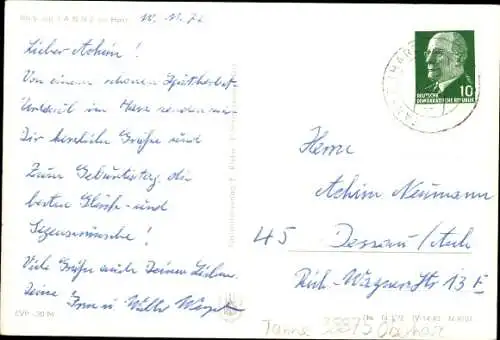 Blick auf TANNE im Harz
10. 11. 72
Lieber Achim!
Von einem schönen Spätherbst-
Urlaub im Harz senden wir
Dir herzliche Grüße und
Zum Geburtstag die
besten Glück- und
Segenswünsche!
Viele Grüße auch Deinen Lieben
Deine und Walter
EVP -,20 M
10
DEUTSCHE
DEMOKRATISCHE REPUBLIK
Herrn
Achim Neumann
45 Dessau/Anh
Rich.-Wagner Str 13 E
Tanne 3725 Oberharz